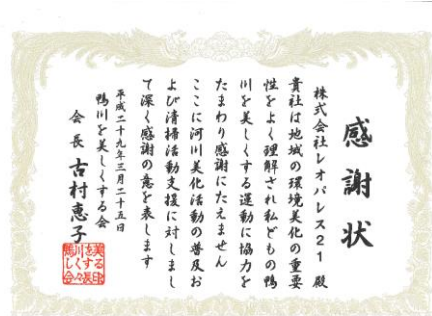 感謝状
株式会社レオパレス21 殿
貴社は地域の環境美化の重要
性をよく理解され私どもの鴨
川を美しくする運動に協力を
たまわり感謝にたえません
ここに河川美化活動の普及お
よび清掃活動支援に対しまし
て深く感謝の意を表します
平成二十九年三月二十五日
鴨川を美しくする会
会長 古村惠子